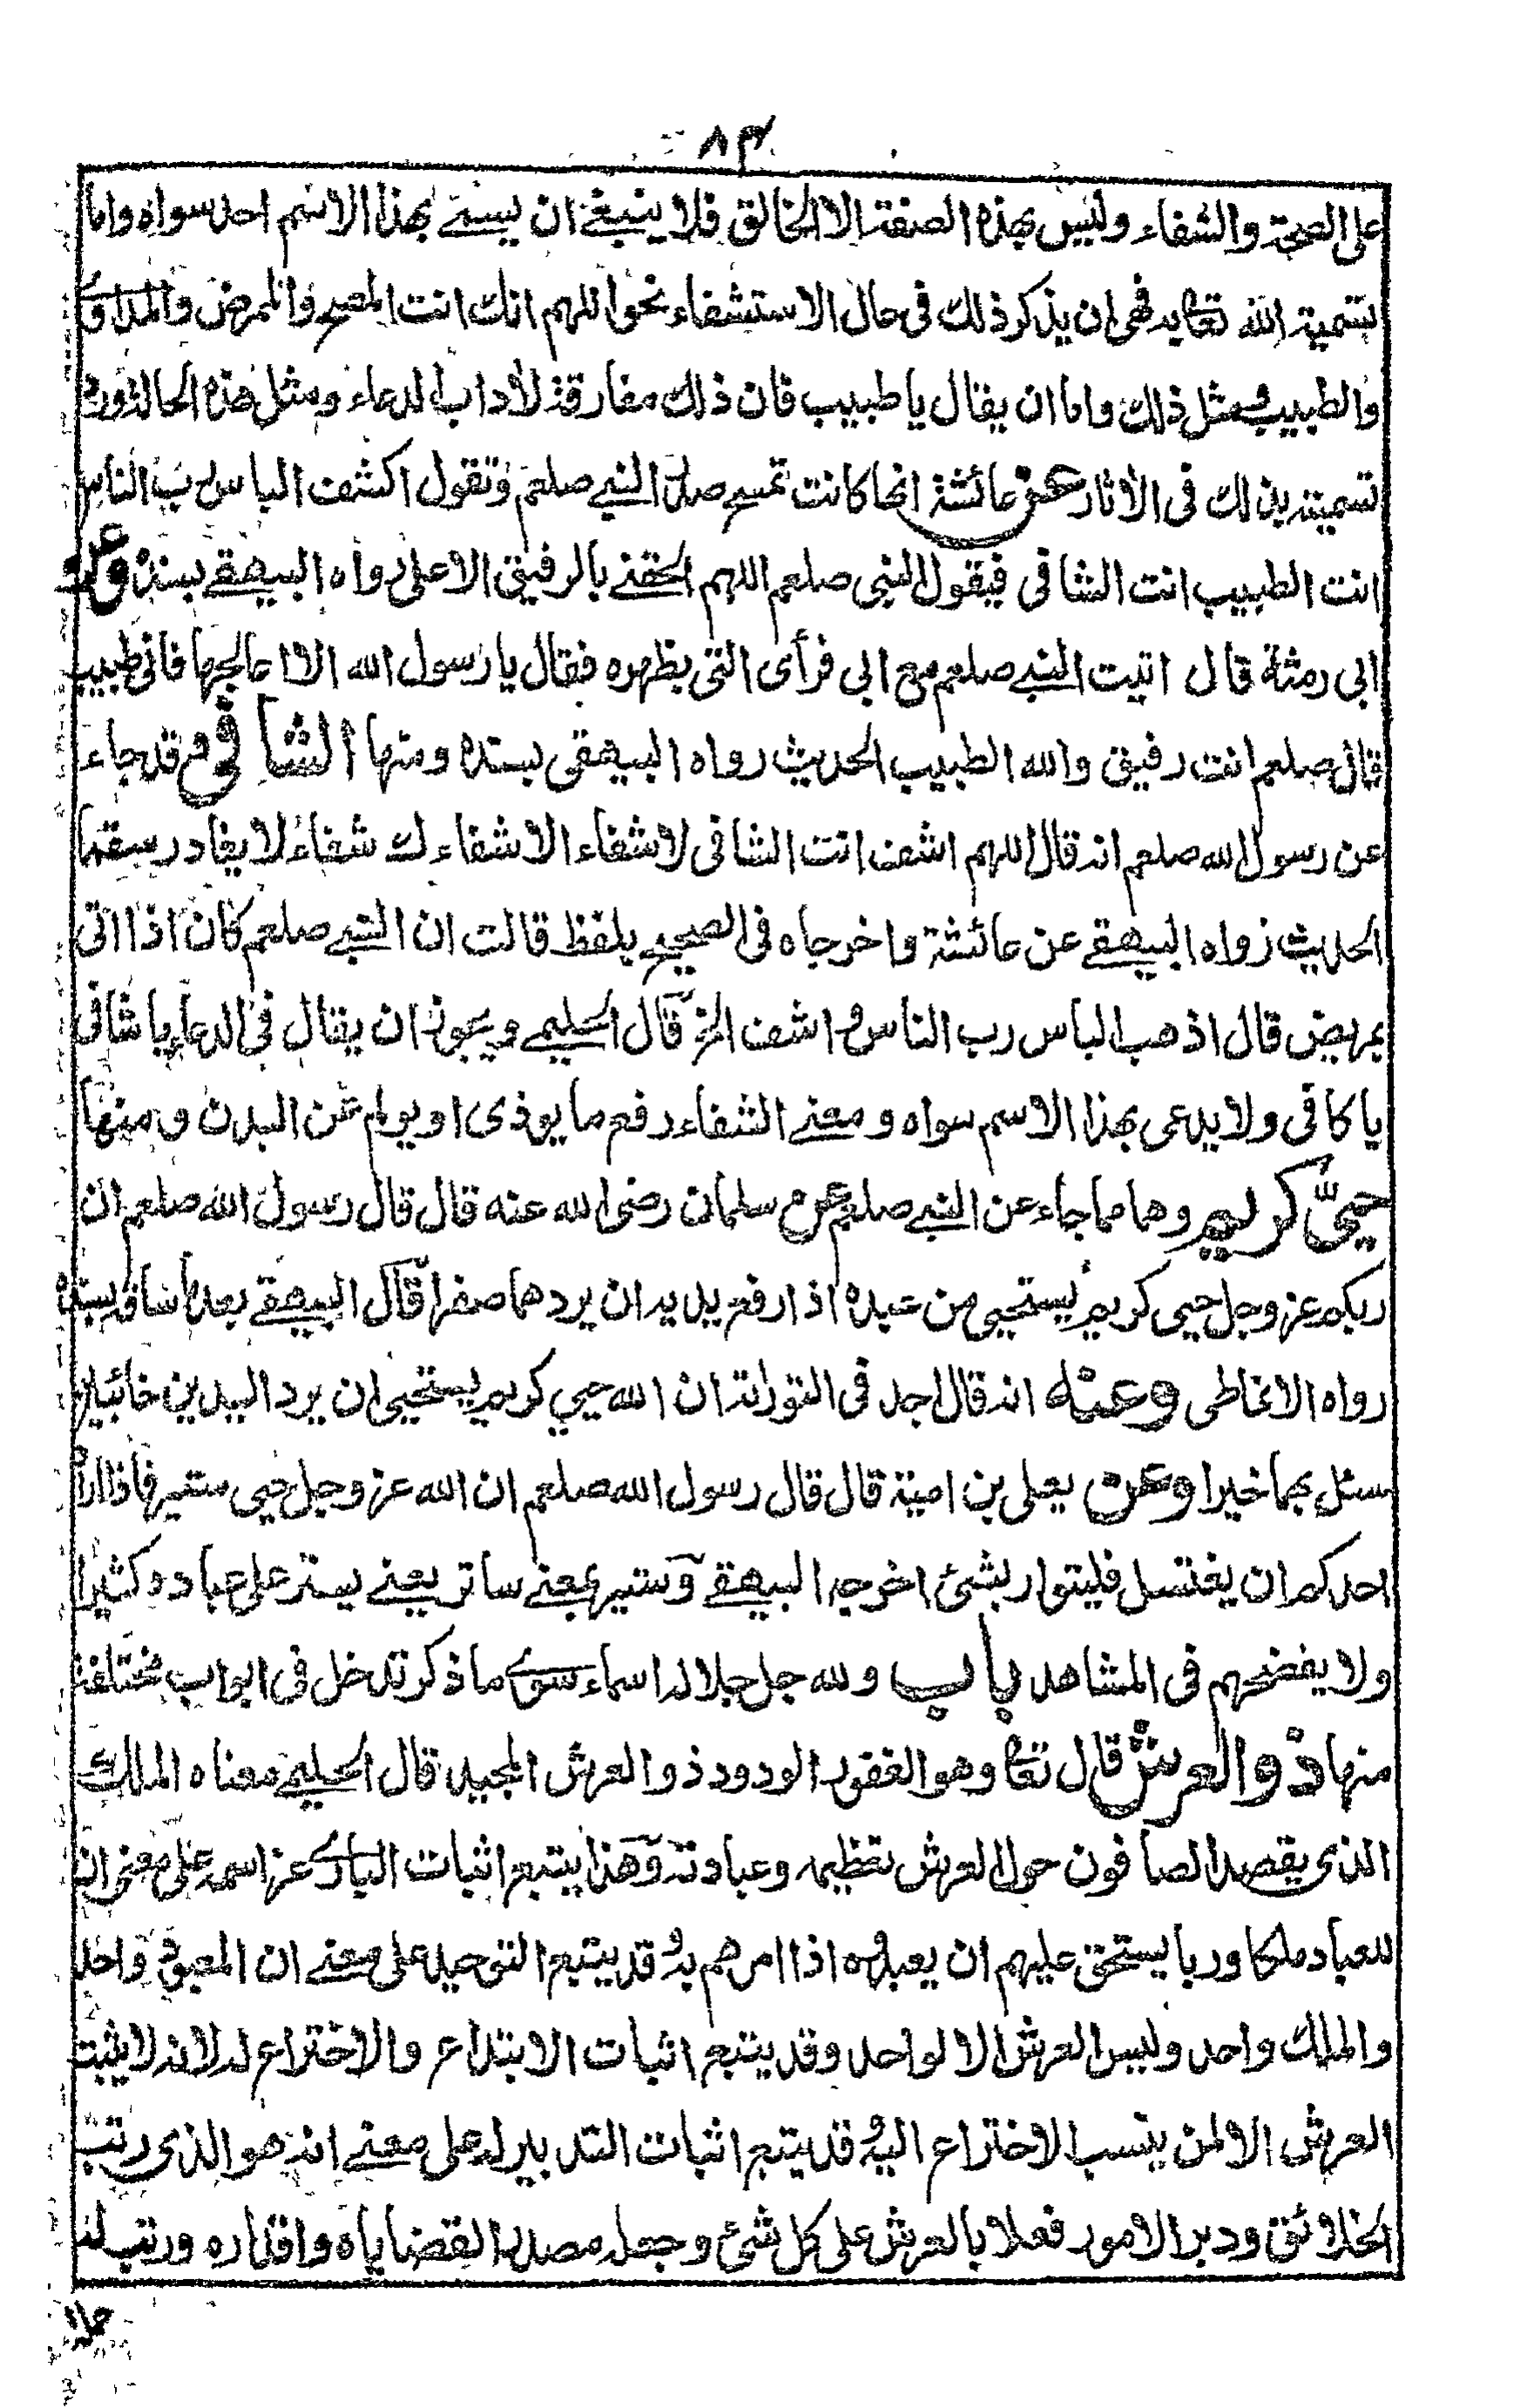 ٨٤
على الصحة والشفاء وليس بهذه الصفة الا الخالق فلا ينبغي ان يسمى بهذا الاسم احد سواه واما
تسمية الله تعالى به فهي ان يذكر ذلك فى حال الاستشفاء نحو اللهم انك انت المصح والممرض والمداوي
والطبيب ومثل ذلك واما ان يقال يا طبيب فان ذلك مفارقة لآداب الدعاء ومثل هذه الحالة ورد
تسميته بذلك فى الآثار عن عائشة انها كانت تمسح صدر النبي صلعم وتقول اكشف الباس رب الناس
انت الطبيب انت الشافى فيقول النبى صلعم اللهم الحقني بالرفيق الاعلى رواه البيهقي بسنده وعن
ابى رمثة قال اتيت النبي صلعم مع ابى فرأى التى بظهره فقال يا رسول الله الا اعالجها فانى طبيب
قال صلعم انت رفيق والله الطبيب الحديث رواه البيهقى بسنده ومنها الشافى وقد جاء
عن رسول الله صلعم انه قال اللهم اشف انت الشافى لا شفاء الا شفاءك شفاءً لا يغادر سقما
الحديث رواه البيهقي عن عائشة واخرجاه فى الصحيح بلفظ قالت ان النبي صلعم كان اذا اتى
بمريض قال اذهب الباس رب الناس واشف الخ قال الحليمي ويجوز ان يقال فى الدعاء يا شافى
يا كافى ولا يدعى بهذا الاسم سواه ومعنى الشفاء رفع ما يوذى او يولم عن البدن ومنها
حيىّ كريم وهما مما جاء عن النبي صلعم عن سلمان رضى الله عنه قال قال رسول الله صلعم ان
ربكم عز وجل حيى كريم يستحيى من عبده اذا رفع يديه ان يردهما صفرا قال البيهقي بعد ما ساقه بسنده
رواه الانماطى وعنه انه قال اجد فى التوراة ان الله حيي كريم يستحيى ان يرد اليدين خائبتين
سئل بهما خيرا وعن يعلى بن امية قال قال رسول الله صلعم ان الله عز وجل حيى ستير فاذا اراد
احدكم ان يغتسل فليتوار بشئ اخرجه البيهقي وستير بمعنى ساتر يعني يستر على عباده كثيرا
ولا يفضحهم فى المشاهد باب ولله جل جلاله اسماء سوى ما ذكر تدخل فى ابواب مختلفة
منها ذو العرش قال تعالى وهو الغفور الودود ذو العرش المجيد قال الحليمي معناه الملك
الذى يقصد الصافون حول العرش تعظيمه وعبادته وهذا يتبع اثبات الباري عز اسمه على معنى انه
للعباد ملكا وربا يستحق عليهم ان يعبدوه اذا امرهم به وقد يتبع التوحيد على معنى ان المعبود واحد
والملك واحد وليس العرش الا لواحد وقد يتبع اثبات الابتداع والاختراع له لانه لا يثبت
العرش الا لمن ينسب الاختراع اليه وقد يتبع اثبات التدبير له على معنى انه هو الذى رتب
الخلائق ودبر الامور فعلا بالعرش على كل شئ وجعله مصدرا لقضاياه واقداره ورتب له